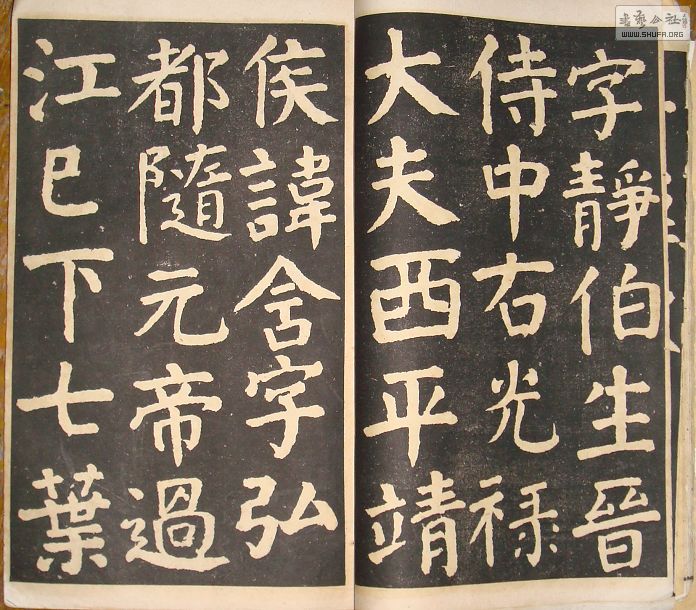 字靜伯生晉
侍中右光禄
大夫西平靖
侯諱含字弘
都隨元帝過
江已下七葉
书艺公社
WWW.SHUFA.ORG